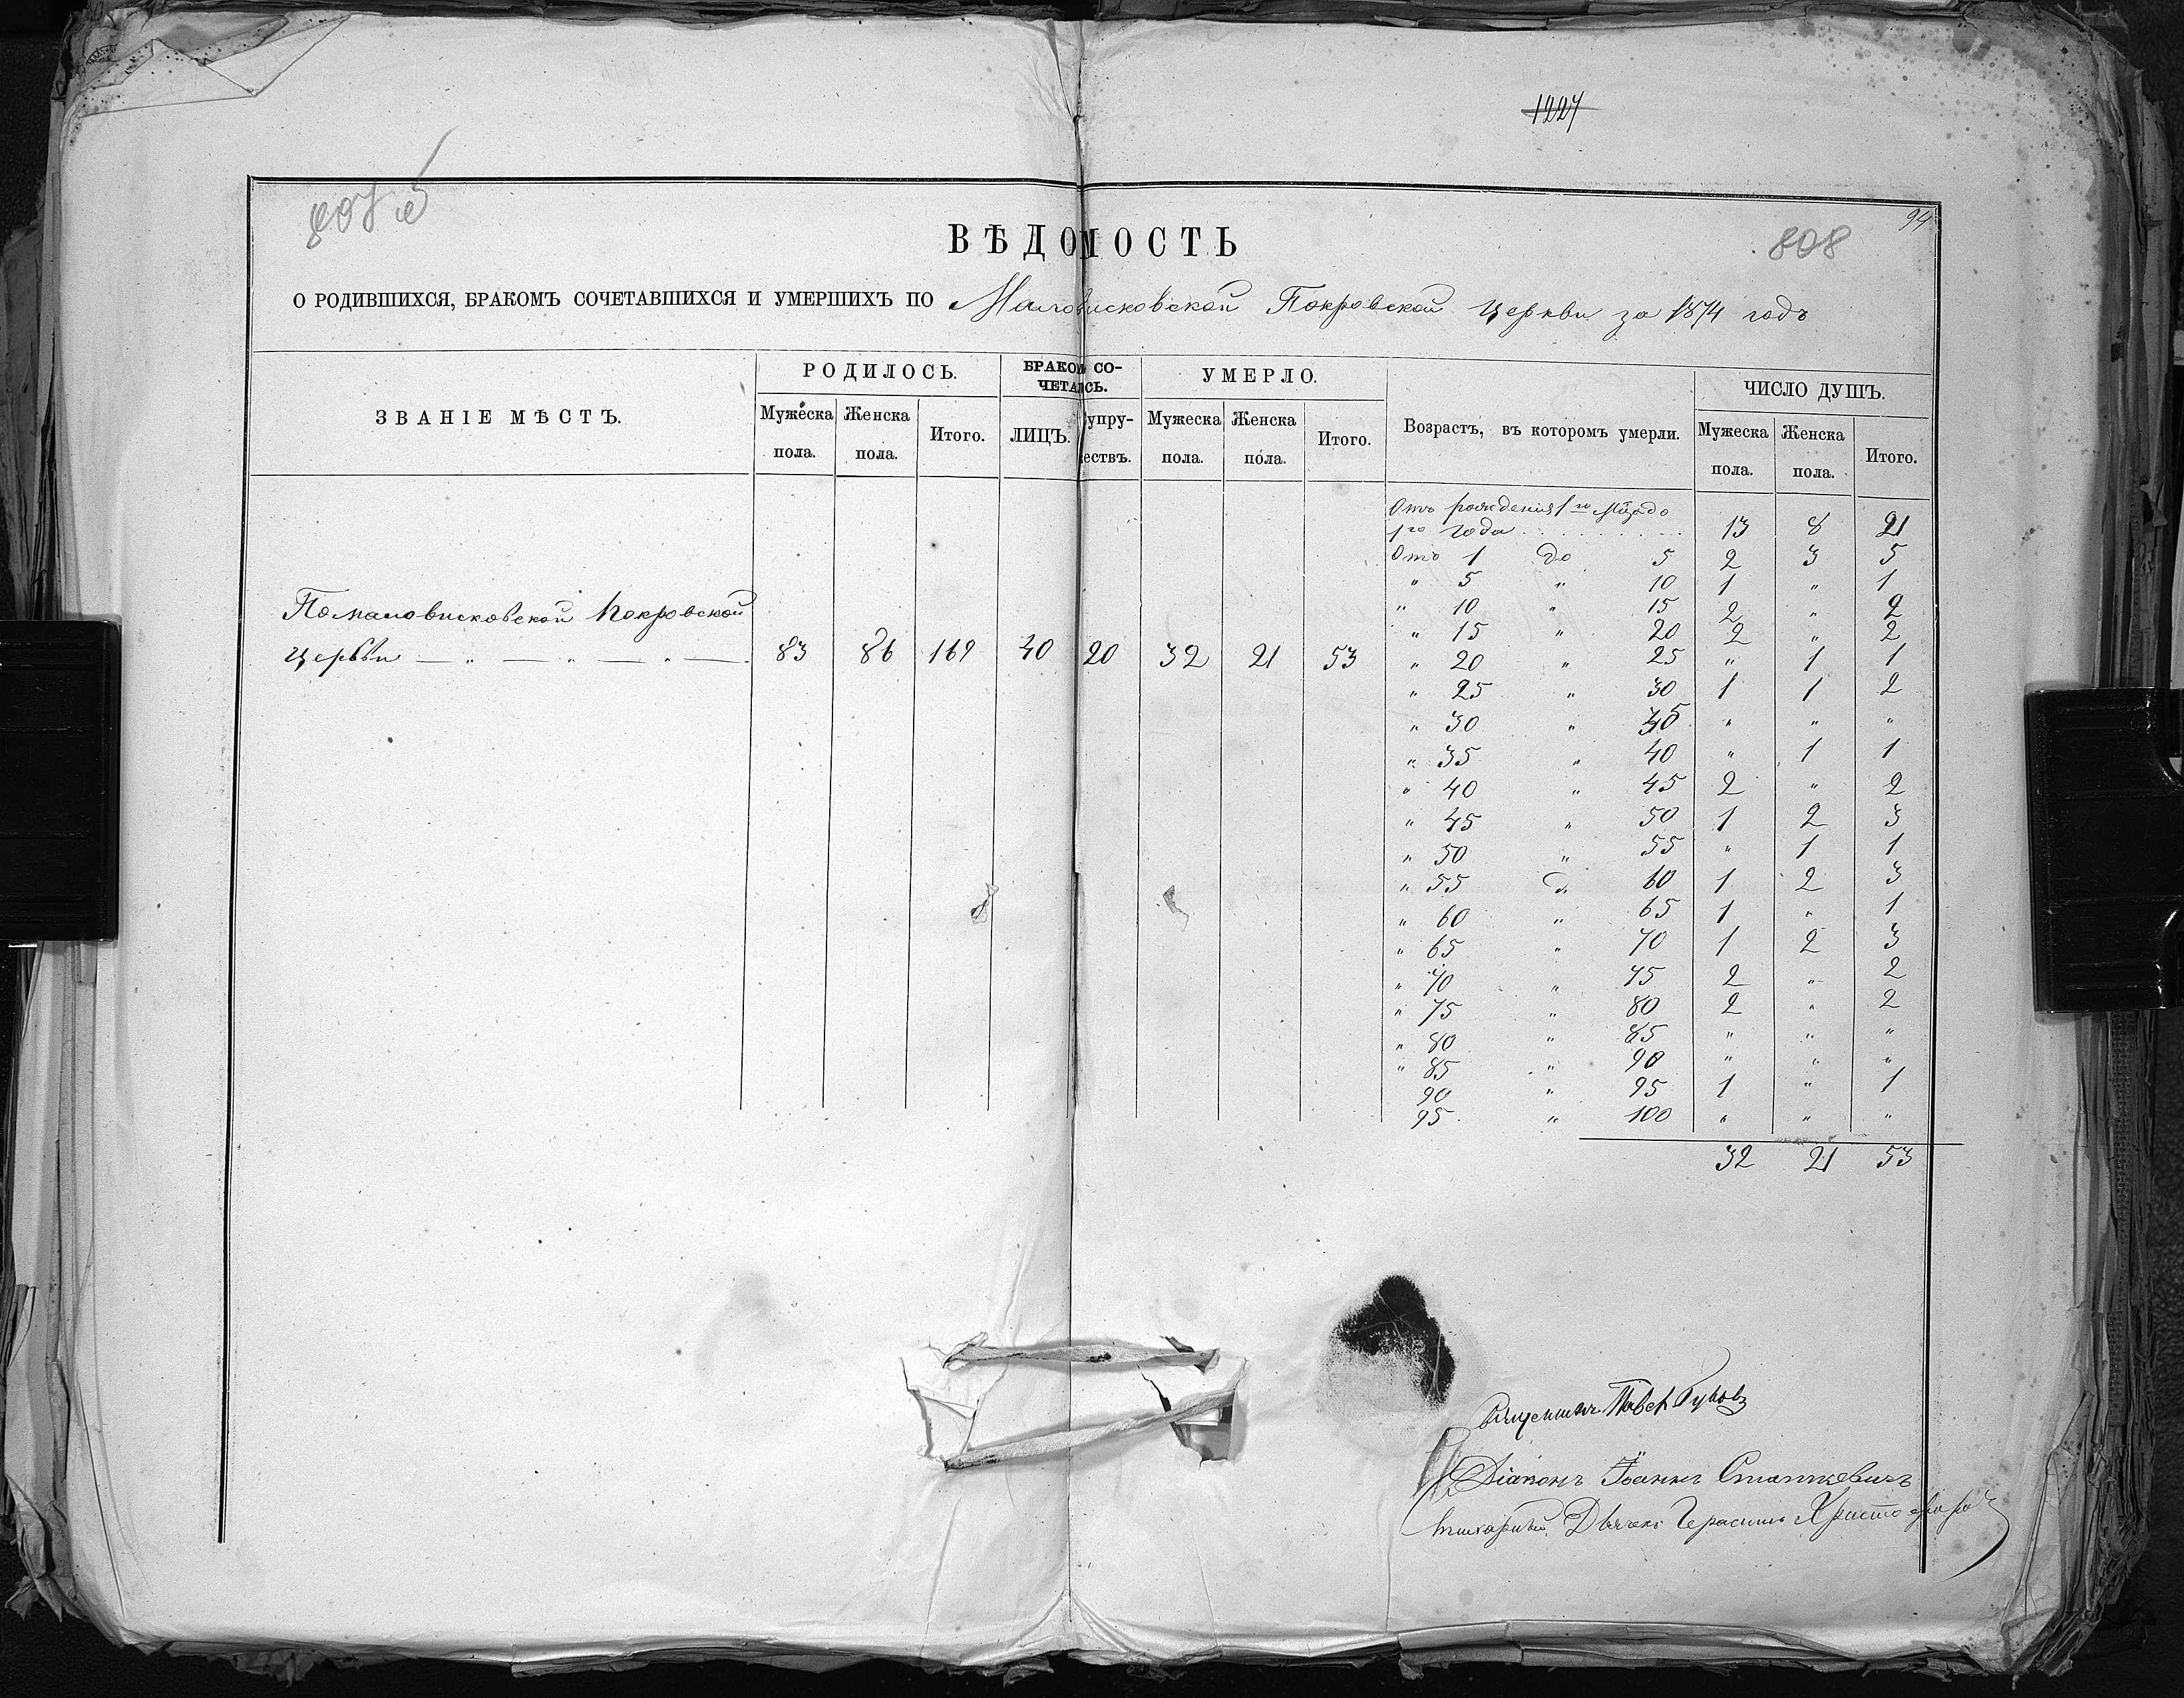 1227
94
807 об
808
ВѢДОМОСТЬ
О РОДИВШИХСЯ, БРАКОМЪ СОЧЕТАВШИХСЯ И УМЕРШИХЪ ПО Маловисковской Покровской Церкви за 1874 годъ
ЗВАНІЕ МѢСТЪ.
РОДИЛОСЬ.
Мужеска пола.
Женска пола.
Итого.
БРАКОМ СО-
ЧЕТАЛСЬ.
ЛИЦЪ.
упру-
ествъ.
УМЕРЛО.
Мужеска пола.
Женска пола.
Итого.
Возрастъ, въ которомъ умерли.
ЧИСЛО ДУШЪ.
Мужеска пола.
Женска пола.
Итого.
По маловисковской Покровской
Церкви — „ — „ — „ — 83 86 169 40 20 32 21 53
Отъ рожденія 1го до
1го года 13 8 21
Отъ 1 до 5 2 3 5
„ 5 „ 10 1 „ 1
„ 10 „ 15 2 „ 2
„ 15 „ 20 2 „ 2
„ 20 „ 25 „ 1 1
„ 25 „ 30 1 1 2
„ 30 „ 35 „ „ „
„ 35 „ 40 „ 1 1
„ 40 „ 45 2 „ 2
„ 45 „ 50 1 2 3
„ 50 „ 55 „ 1 1
„ 55 „ 60 1 2 3
„ 60 „ 65 1 „ 1
„ 65 „ 70 1 2 3
„ 70 „ 75 2 „ 2
„ 75 „ 80 2 „ 2
„ 80 „ 85 „ „ „
„ 85 „ 90 „ „ „
90 „ 95 1 „ 1
95 „ 100 „ „ „
32 21 53
Священникъ Павелъ
Діаконъ Іоаннъ Статкевичъ
Дьячекъ Герасимъ Христофоро